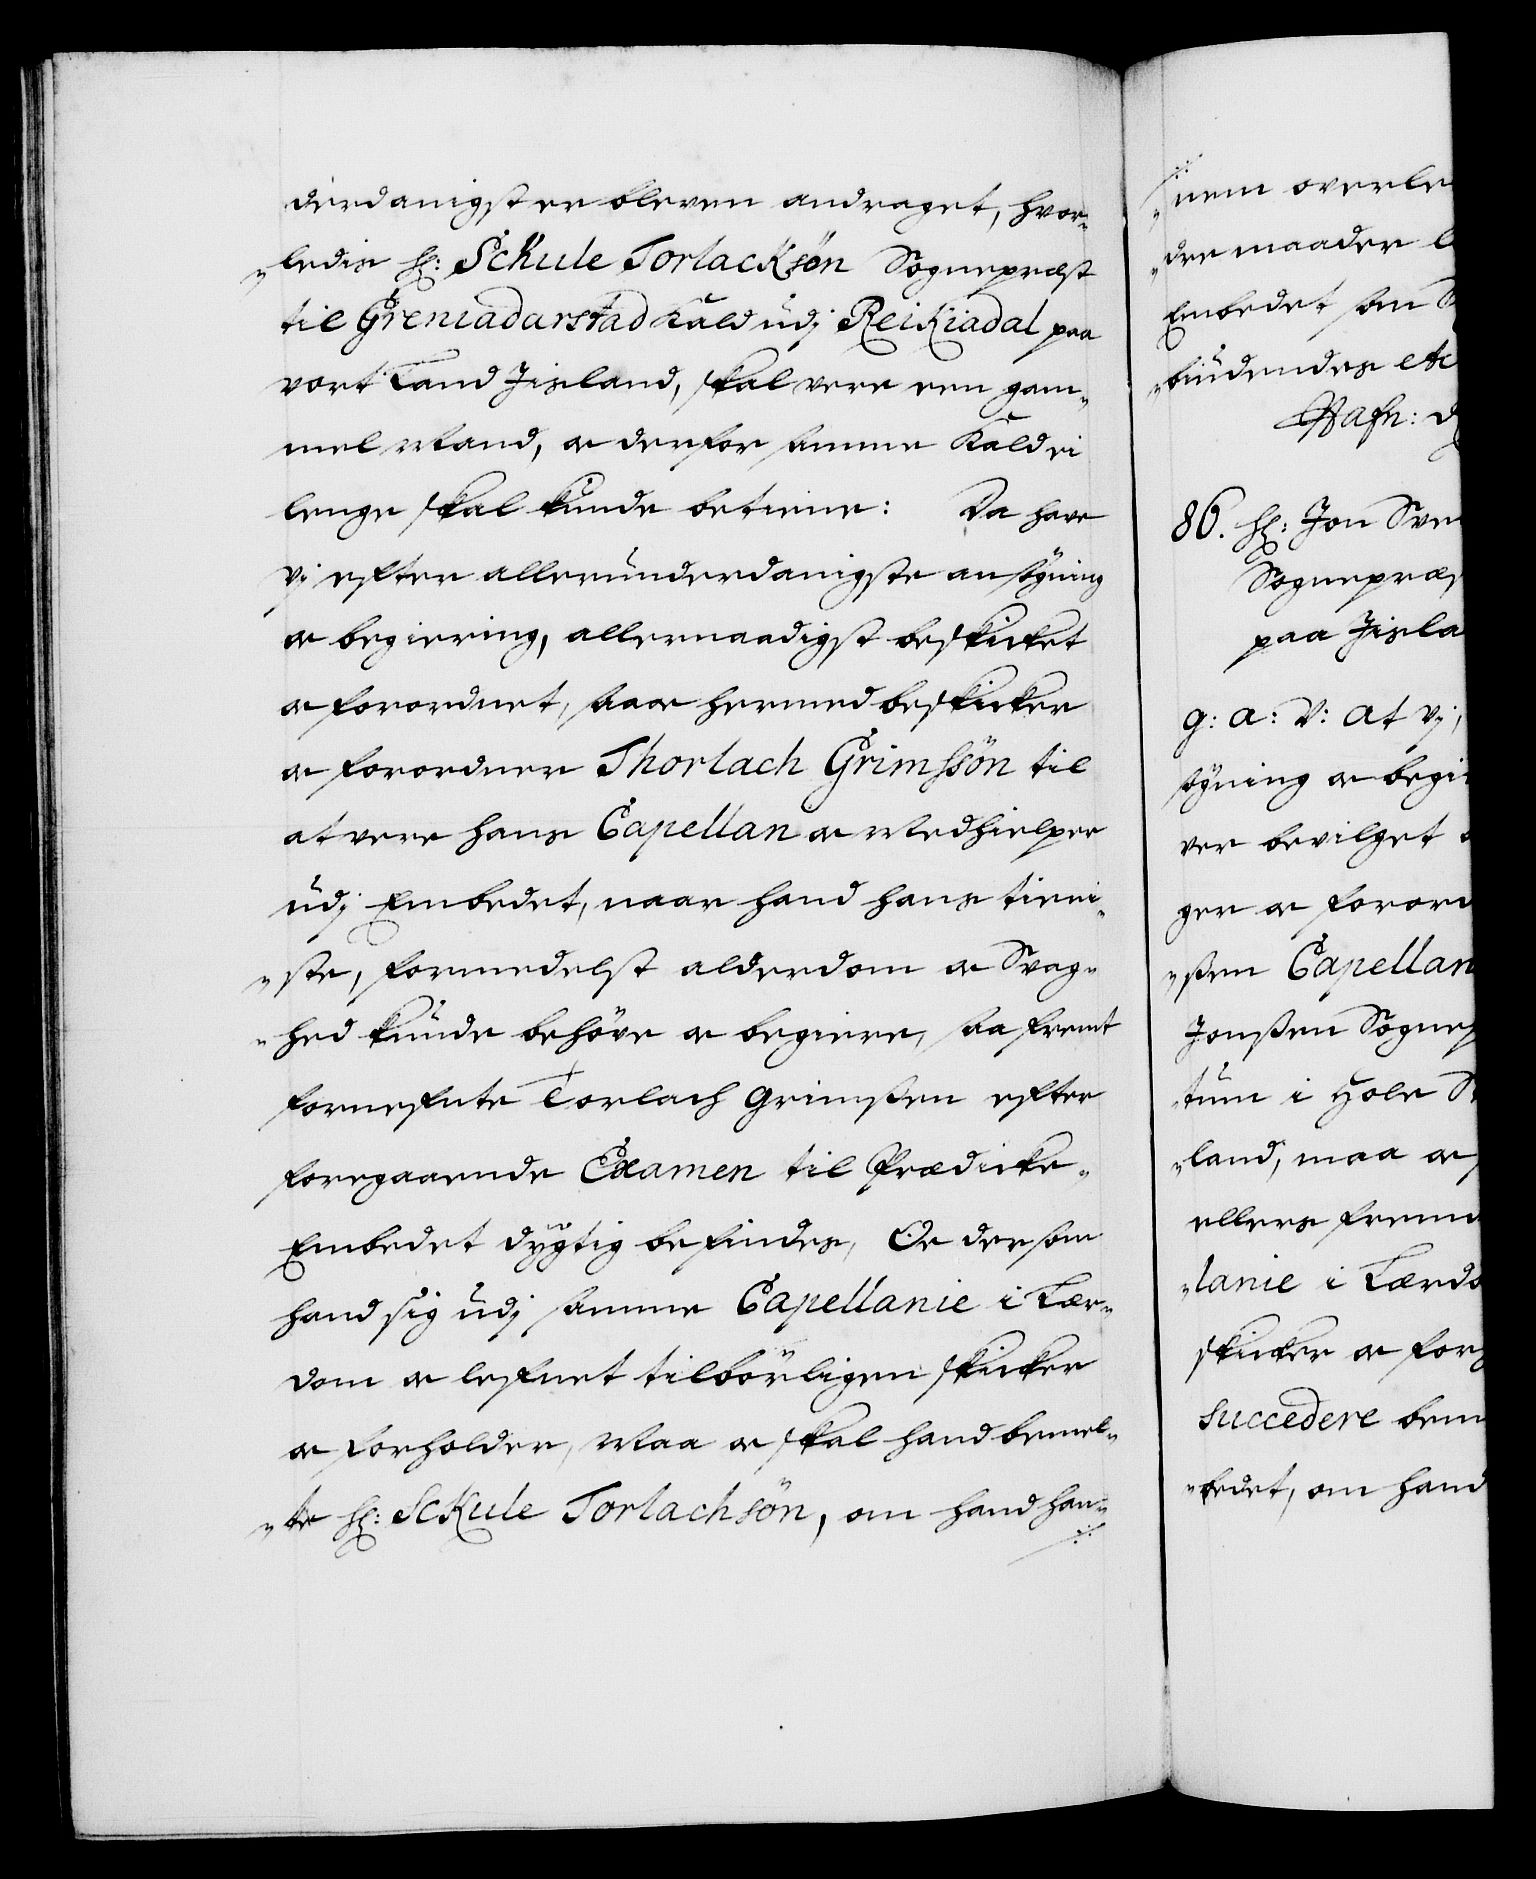 derdanigst er bleven andraget, hvor-
-ledis Hr: Schule Torlacksön Sognepræst
til Greniadarstad Kald udj Reikiadal paa
vort Land Jisland, skal vere een gam-
mel Mand, og derfor samme Kald ei
lenge skal kunde betiene: Da have
Vj efter allerunderdanigste ansögning
og begiering, allernaadigst beskicket
og forordnet, saa og hermed beskicker
og forordner Thorlach Grimssön til
at vere hans Capellan og Medhielper
udj Embedet, naar hand hans tieni-
-ste, formedelst alderdom og Svag-
-hed kunde behöve og begiere, saa fremt
fornefnte Torlach Grimssen efter
foregaaende Examen til Prædicke-
Embedet dygtig befindes, Og dersom
hand sig udj samme Capellanie i Lær-
dom og lefnet tilbörligen skicker
og forholder, Maa og skal hand bemel-
-te Hr: Schule Torlachsön, om hand han-
-nem overle
-dre maader
Embedet som
-biudendes etc
Hafn:
86. Hr: Jon Sve
Sognepræs
paa Jisla
g: a: V: at Vj,
sögning og begi
ver bevilget
ger og forord
-ssen Capellan
Jonssen Sognep
-tum i Hole
-land, maa og
ellers frem
-lanie i Lærdo
skicker og for
succedere bem
-bedet, om hand